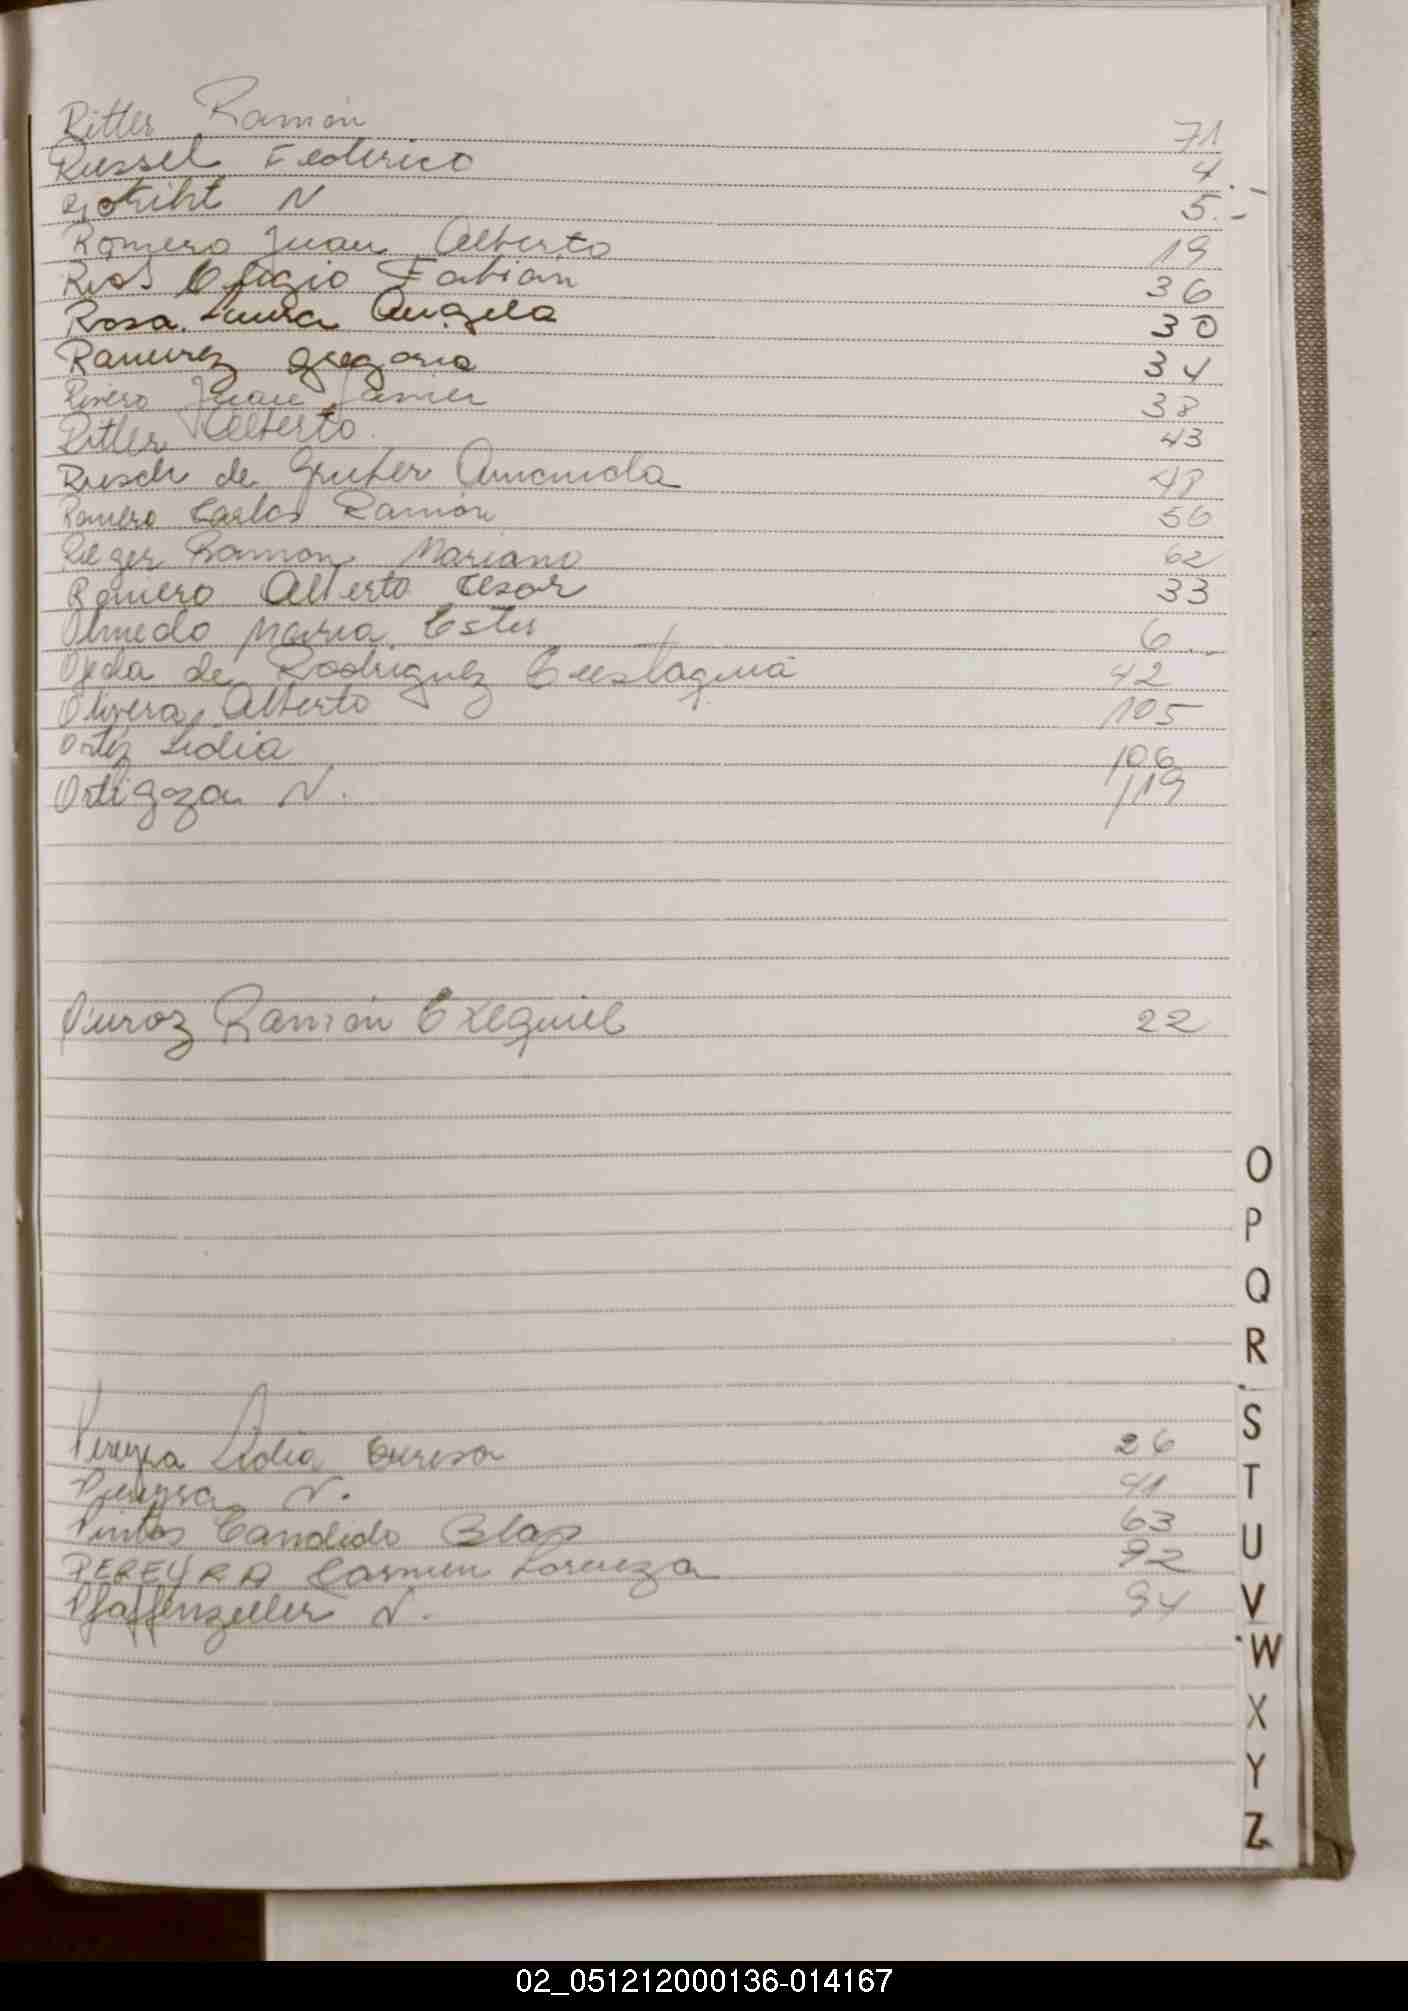 Ritter Ramón 71
Russel Federico 4.-
N 5.-
Romero Juan Alberto 19
Rios Eligio Fabian 36
Rosa Laura Angela 30
Ramirez Gregorio 34
Rivero Juan Javier 38
Ritter Alberto 43
Rusch de Gruber Amanda 48
Romero Carlos Ramón 56
Rieger Ramon Mariano 62
Romero Alberto Cesar 33
Olmedo Maria Ester 6
Ojeda de Rodriguez Eustaquia 42
Olivera Alberto 105
Ortiz Lidia 106
Ortigoza N. 119
Ramón Exequiel 22
Pereyra Lidia 26
N. 41
Pintos Candido Blas 63
PEREYRA Carmen Lorenza 92
Pfaffenzeller N. 94
O
P
Q
R
S
T
U
V
W
X
Y
Z
02_051212000136-014167